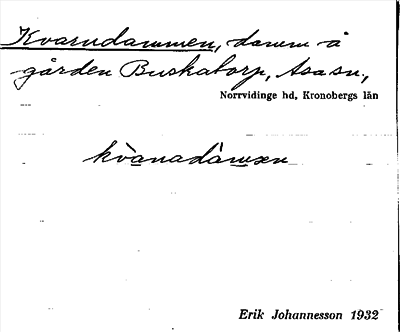 Kvarndammen, damm å
gården Buskatorp, Asa sn,
Norrvidinge hd, Kronobergs län
kvànadàmən
Erik Johannesson 1932